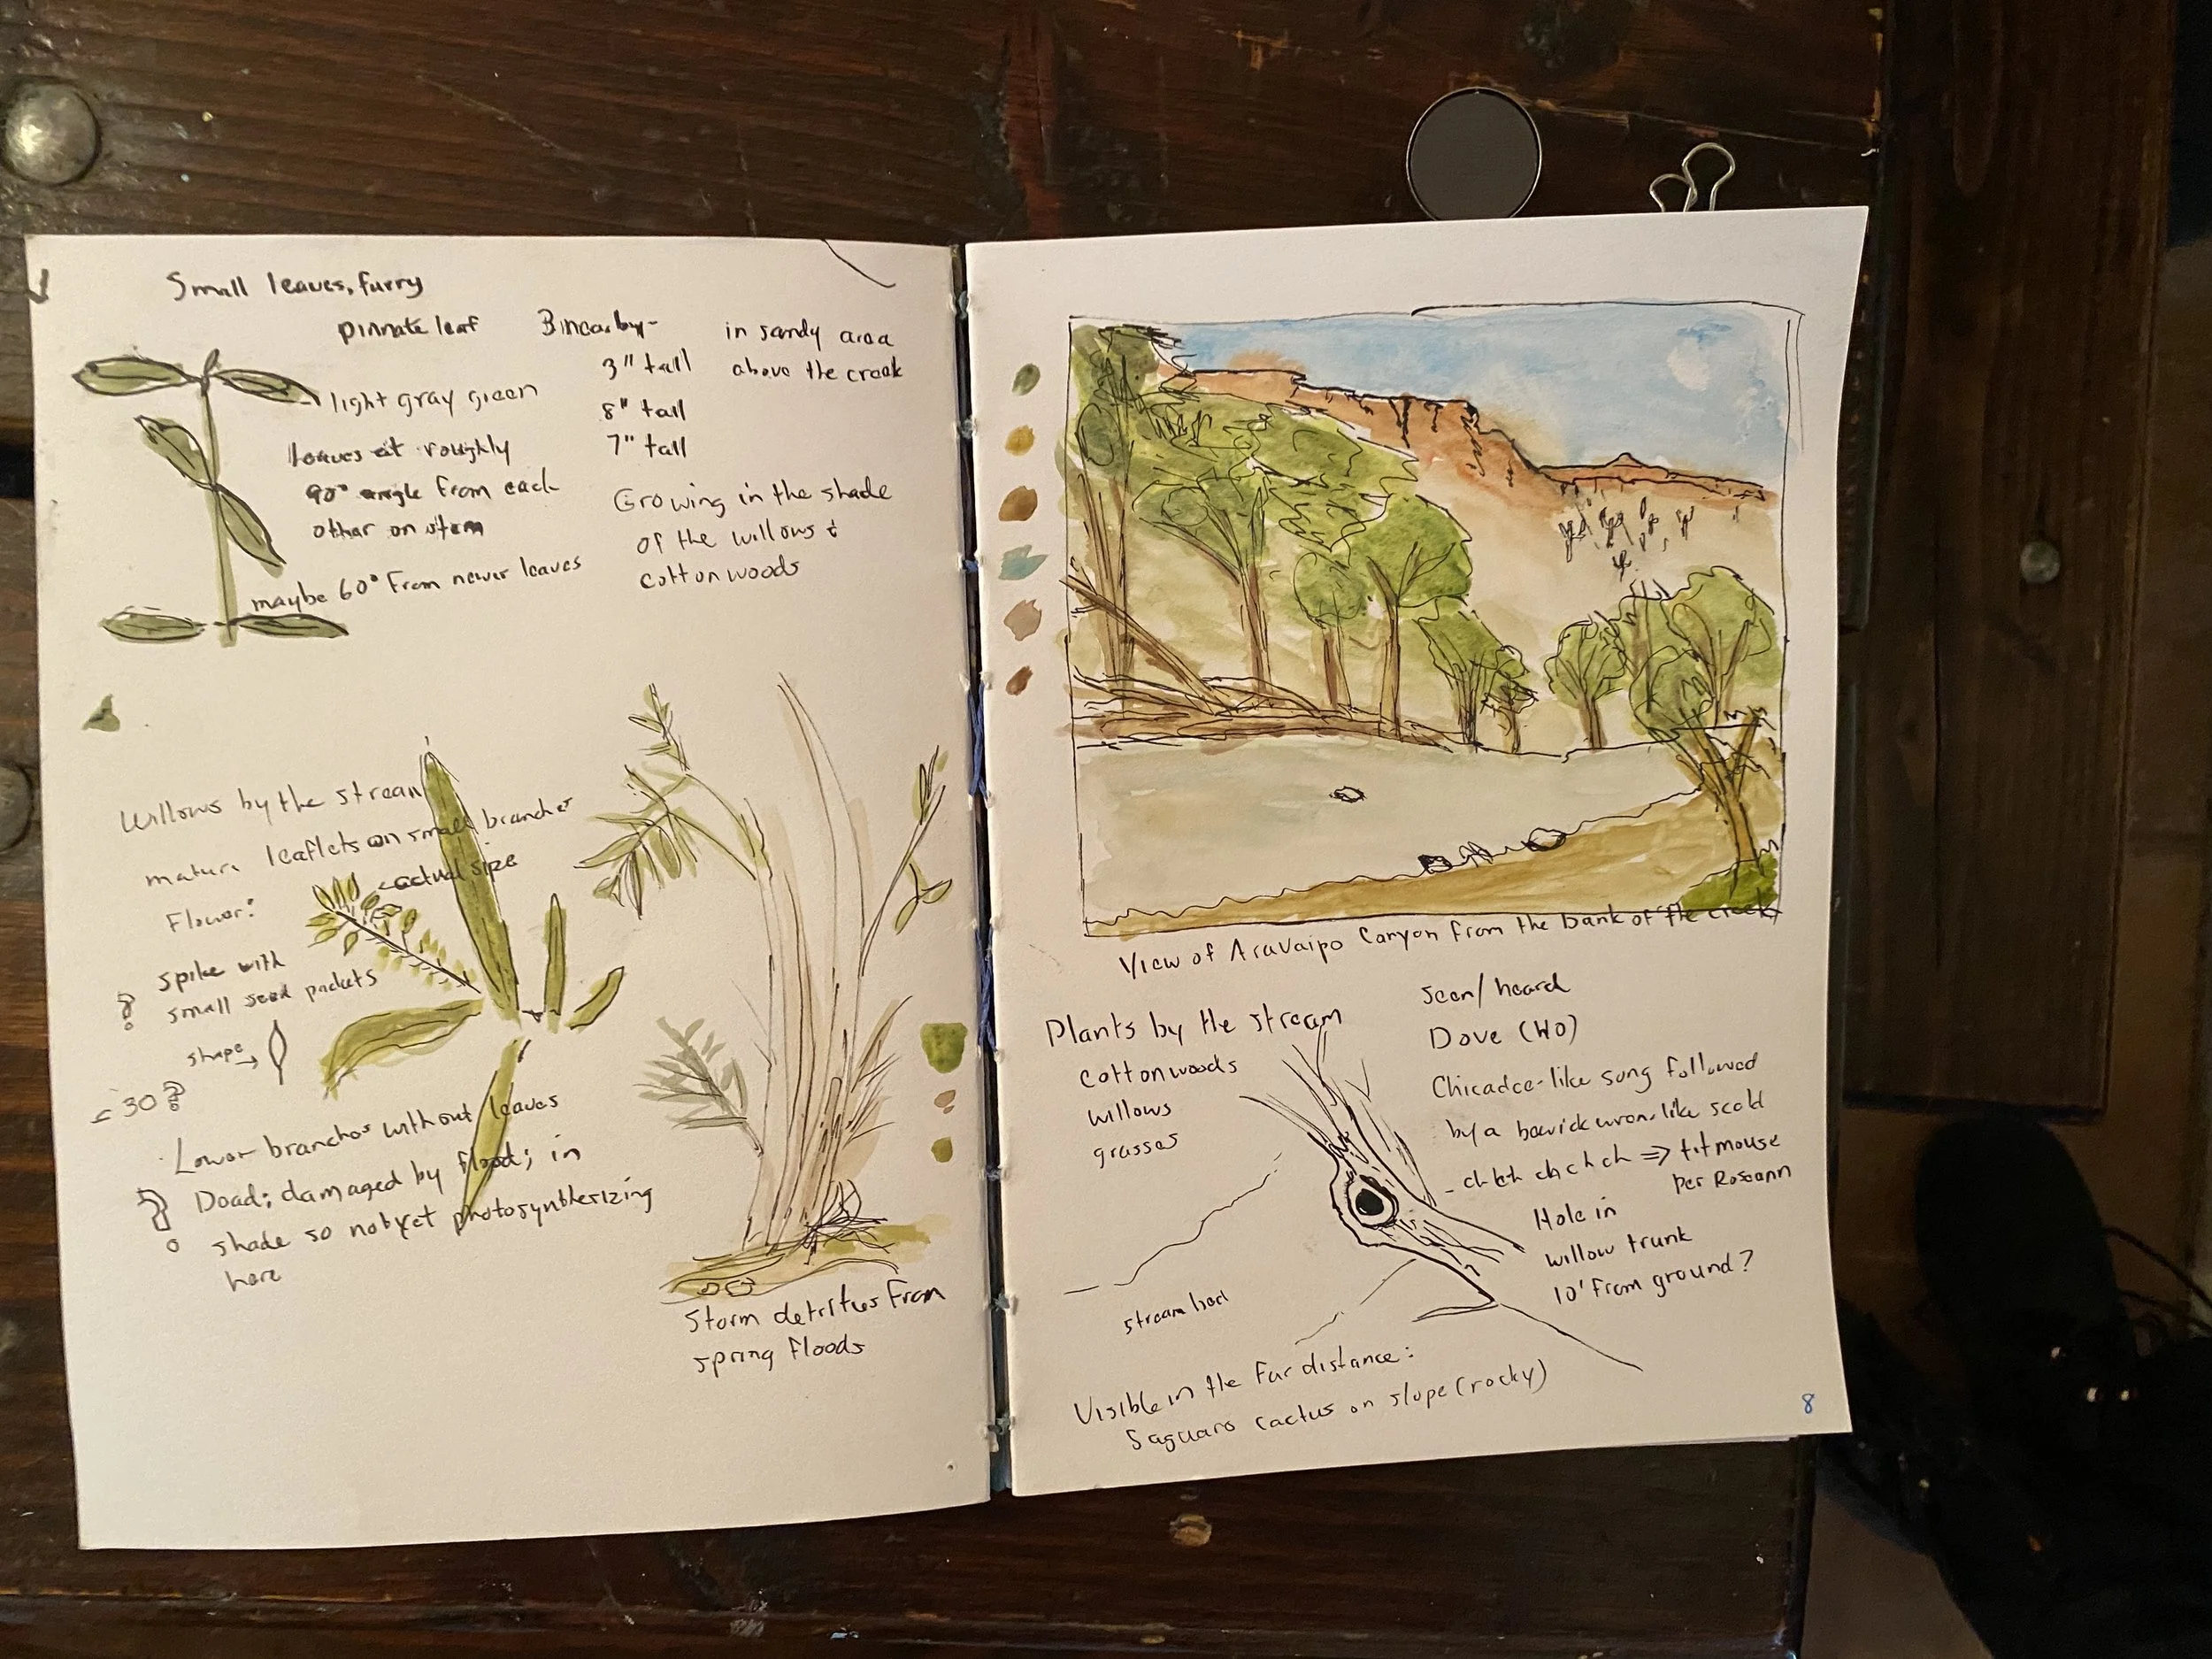 Small leaves, furry
pinnate leaf
light gray green
leaves at roughly
90° angle from each
other on stem
maybe 60° from newer leaves
3" tall
8" tall
7" tall
in sandy area
above the creek
Growing in the shade
of the willows &
cottonwoods
Willows by the stream
mature leaflets on small branches
actual size
Flower:
spike with
? small seed packets
shape →
30?
Lower branches without leaves
? Dead; damaged by flood; in
shade so not yet photosynthesizing
here
Storm detritus from
spring floods
View of Aravaipo Canyon from the bank of the creek
Plants by the stream
cottonwoods
willows
grasses
stream bed
Seen/heard
Dove (WD)
Chicadee-like song followed
by a bewick wren-like scold
ch ch ch => titmouse
per Roseann
Hole in
willow trunk
10' from ground?
Visible in the far distance:
Saguaro cactus on slope (rocky)
8